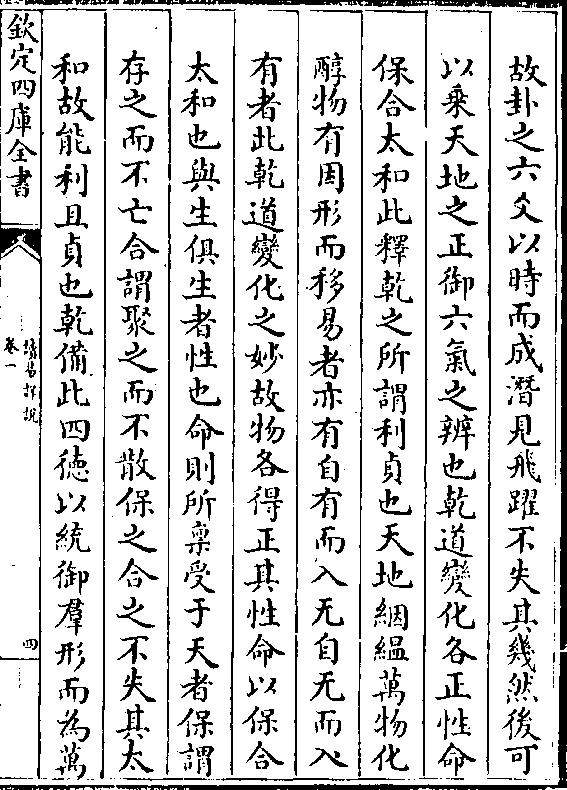 故卦之六爻以時而成潛見飛躍不失其幾然後可
以乘天地之正御六氣之辨也乾道變化各正性命
保合太和此釋乾之所謂利貞也天地絪緼萬物化
醇物有因形而移易者亦有自有而入无自无而入
有者此乾道變化之妙故物各得正其性命以保合
太和也與生俱生者性也命則所稟受于天者保謂
存之而不亡合謂聚之而不散保之合之不失其太
和故能利且貞也乾備此四德以統御羣形而為萬
欽定四庫全書
讀易詳說
卷一
四